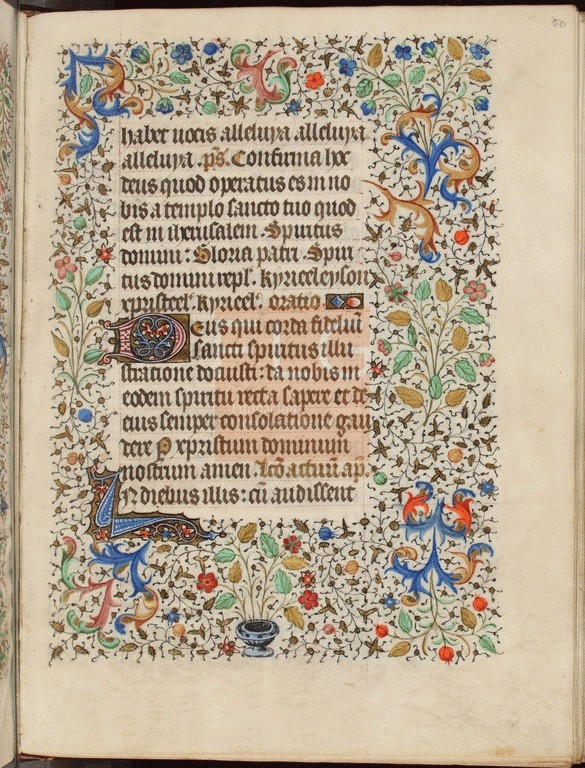 50
habet uocis alleluya alleluya
alleluya. ps. Confirma hoc
deus quod operatus es in no
bis a templo sancto tuo quod
est in iherusalem. Spiritus
domini: Gloria patri. Spiri
tus domini repl. kyrieeleyson
xpristeel. kyrieel. oratio
Deus qui corda fideliū
sancti spiritus illu
stratione docuisti: da nobis in
eodem spiritu recta sapere et de
eius semper consolatione gau
dere P xpristum dominum
nostrum amen. Lcō actuū ap.
In diebus illis: cū audissent